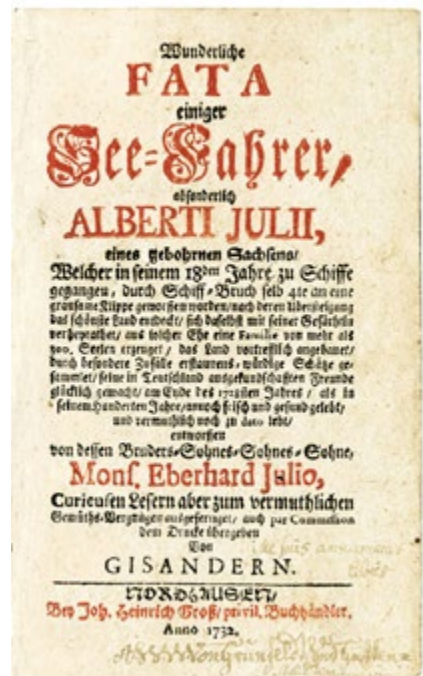 Wunderliche
FATA
einiger
See-Fahrer,
absonderlich
ALBERTI JULII,
eines gebohrnen Sachsens/
Welcher in seinem 18den Jahre zu Schiffe
gegangen, durch Schiff-Bruch selb 4te an eine
grausame Klippe geworffen worden/ nach deren Übersteigung
das schönste Land entdeckt/ sich daselbst mit seiner Gefährtin
verheyrathet/ aus solcher Ehe eine Familie von mehr als
300. Seelen erzeuget/ das Land vortrefflich angebauet/
durch besondere Zufälle erstaunens-würdige Schätze ge-
sammlet/ seine in Teutschland ausgekundschafften Freunde
glücklich gemacht/ am Ende des 1728sten Jahres/ als in
seinem Hunderten Jahre/ annoch frisch und gesund gelebt/
und vermuthlich noch zu dato lebt/
entworffen
von dessen Bruders-Sohnes-Sohnes-Sohne,
Mons. Eberhard Julio,
Curieusen Lesern aber zum vermuthlichen
Gemüths-Vergnügen ausgefertiget/ auch par Commission
dem Drucke übergeben
Von
GISANDERN.
NORDHAUSEN/
Bey Joh. Heinrich Groß/ privil. Buchhändler.
Anno 1732.